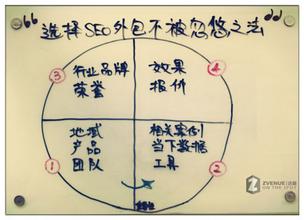 “选择SEO外包不被忽悠之法”
③
行业品牌
荣誉
④
效果
报价
①
地域
产品
团队
②
相关案例
当下数据
工具
ZVENUE
ON THE SPOT